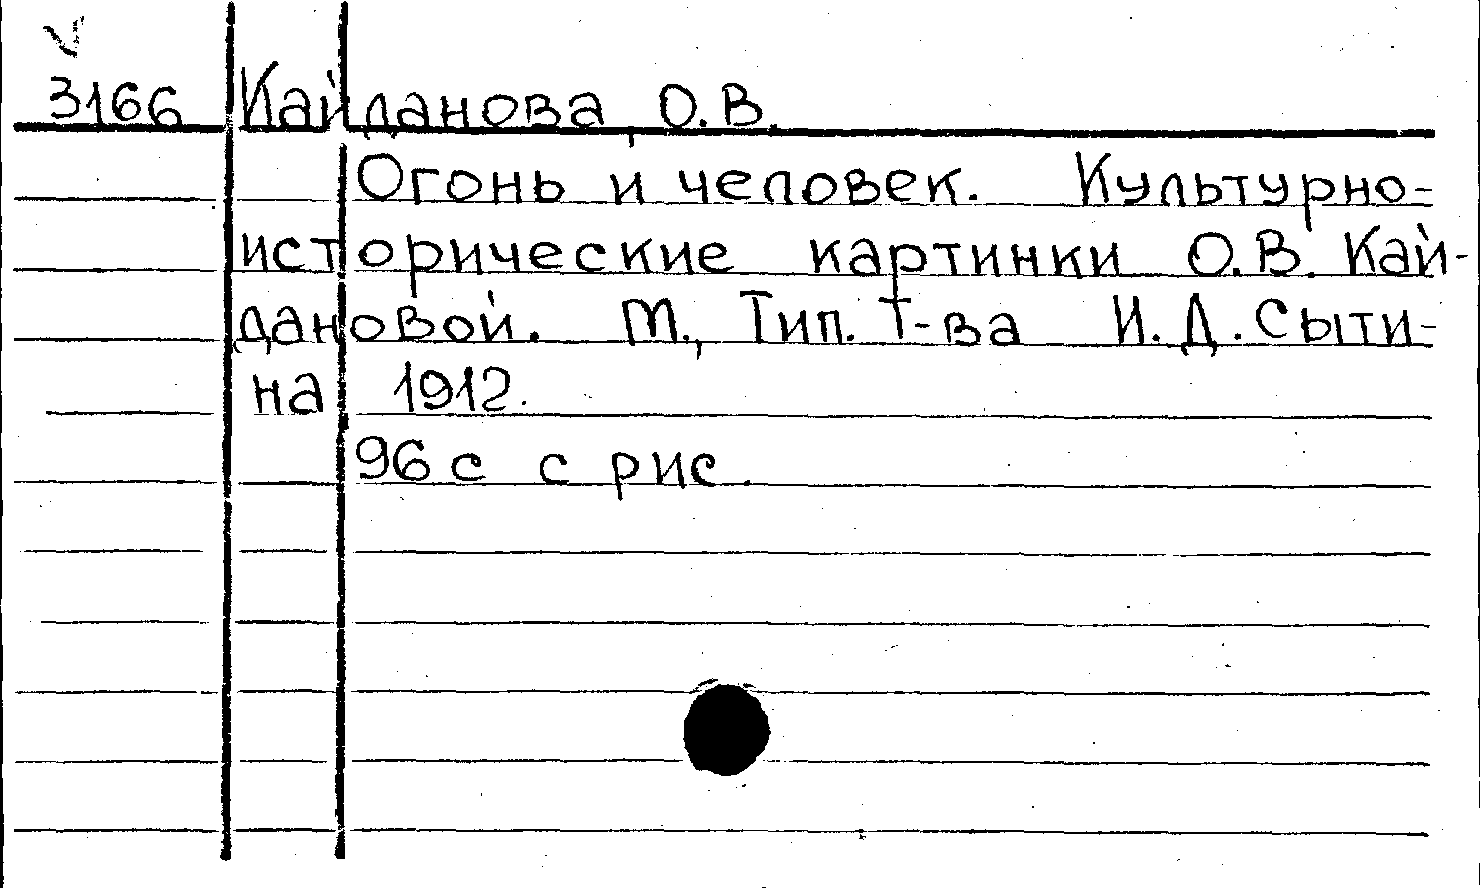 V
3166 Кайданова, О.В.
Огонь и человек. Культурно-
исторические картинки О.В. Кай-
дановой. М., Тип. Т-ва И.Д. Сыти-
на 1912.
96 с с рис.